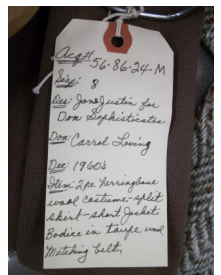 Acq# 56.86.24.M
Size: 8
Des: Jane Justin for
Don Sophisticates
Don: Carrol Loving
Dec: 1960's
Item: 2pc herringbone
wool costume - split
skirt - short jacket
Bodice in taupe wool
Matching belt,